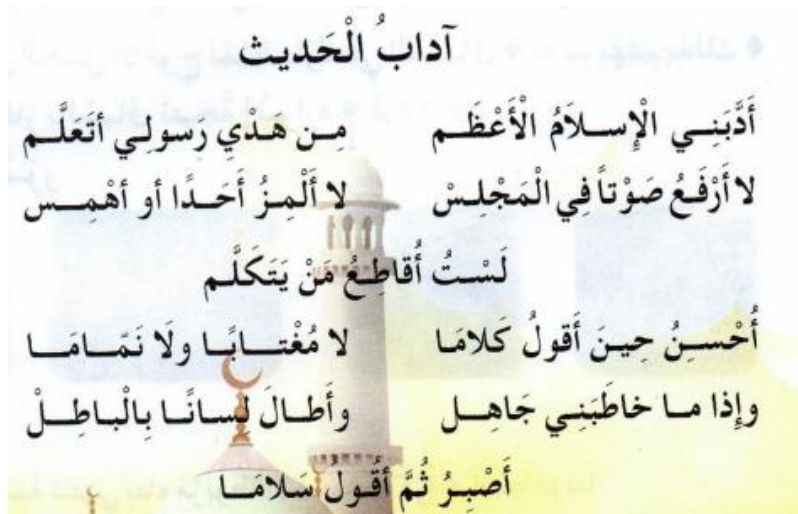 آدابُ الْحَديث
أَدَّبَنِي الْإِسلَامُ الْأَعْظَم مِن هَدْيِ رَسولِي أتَعلَّم
لا أَرْفَعُ صَوْتاً فِي الْمَجْلِسْ لا أَلْمِزُ أَحَدًا أو أهْمِس
لَسْتُ أُقاطِعُ مَنْ يَتَكَلَّم
أُحْسِنُ حينَ أَقولُ كَلامَا لا مُغْتابًا ولَا نَمّامَا
وإِذا ما خاطَبَنِي جَاهِل وأَطالَ لِسانًا بِالْباطِلْ
أَصْبِرُ ثُمَّ أَقُولُ سَلامَا